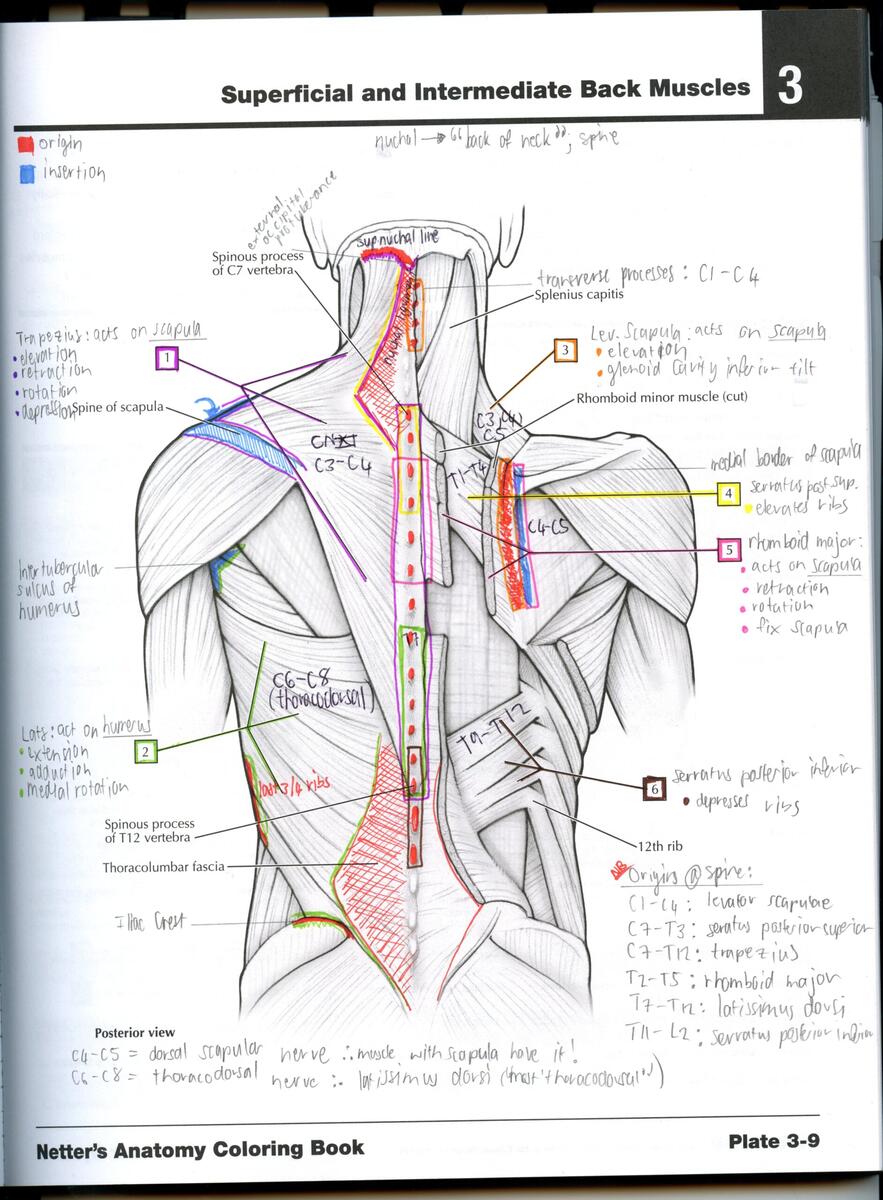 Superficial and Intermediate Back Muscles
3
origin
insertion
nuchal → "back of neck"; spine
external occipital protuberance
sup nuchal line
Spinous process
of C7 vertebra
nuchal ligament
transverse processes: C1-C4
Splenius capitis
Trapezius: acts on scapula
• elevation
• retraction
• rotation
• depression
1
Spine of scapula
3
Lev. Scapula: acts on scapula
• elevation
• glenoid cavity inferior tilt
Rhomboid minor muscle (cut)
C3, C4
C5
CNXI
C3-C4
T1-T4
medial border of scapula
4
serratus post sup.
• elevates ribs
C4-C5
5
rhomboid major:
• acts on scapula
• retraction
• rotation
• fix scapula
Intertubercular
sulcus of
humerus
T7
C6-C8
(thoracodorsal)
Lats: act on humerus
• extension
• adduction
• medial rotation
2
T9-T12
last 3/4 ribs
6
serratus posterior inferior
• depresses ribs
Spinous process
of T12 vertebra
12th rib
Thoracolumbar fascia
Iliac Crest
NB Origins @ spine:
C1-C4: levator scapulae
C7-T3: seratus posterior superior
C7-T12: trapezius
T2-T5: rhomboid major
T7-T12: latissimus dorsi
T11-L2: serratus posterior inferior
Posterior view
C4-C5 = dorsal scapular nerve ∴ muscle with scapula have it!
C6-C8 = thoracodorsal nerve ∴ latissimus dorsi ("most thoracodorsal")
Netter's Anatomy Coloring Book
Plate 3-9